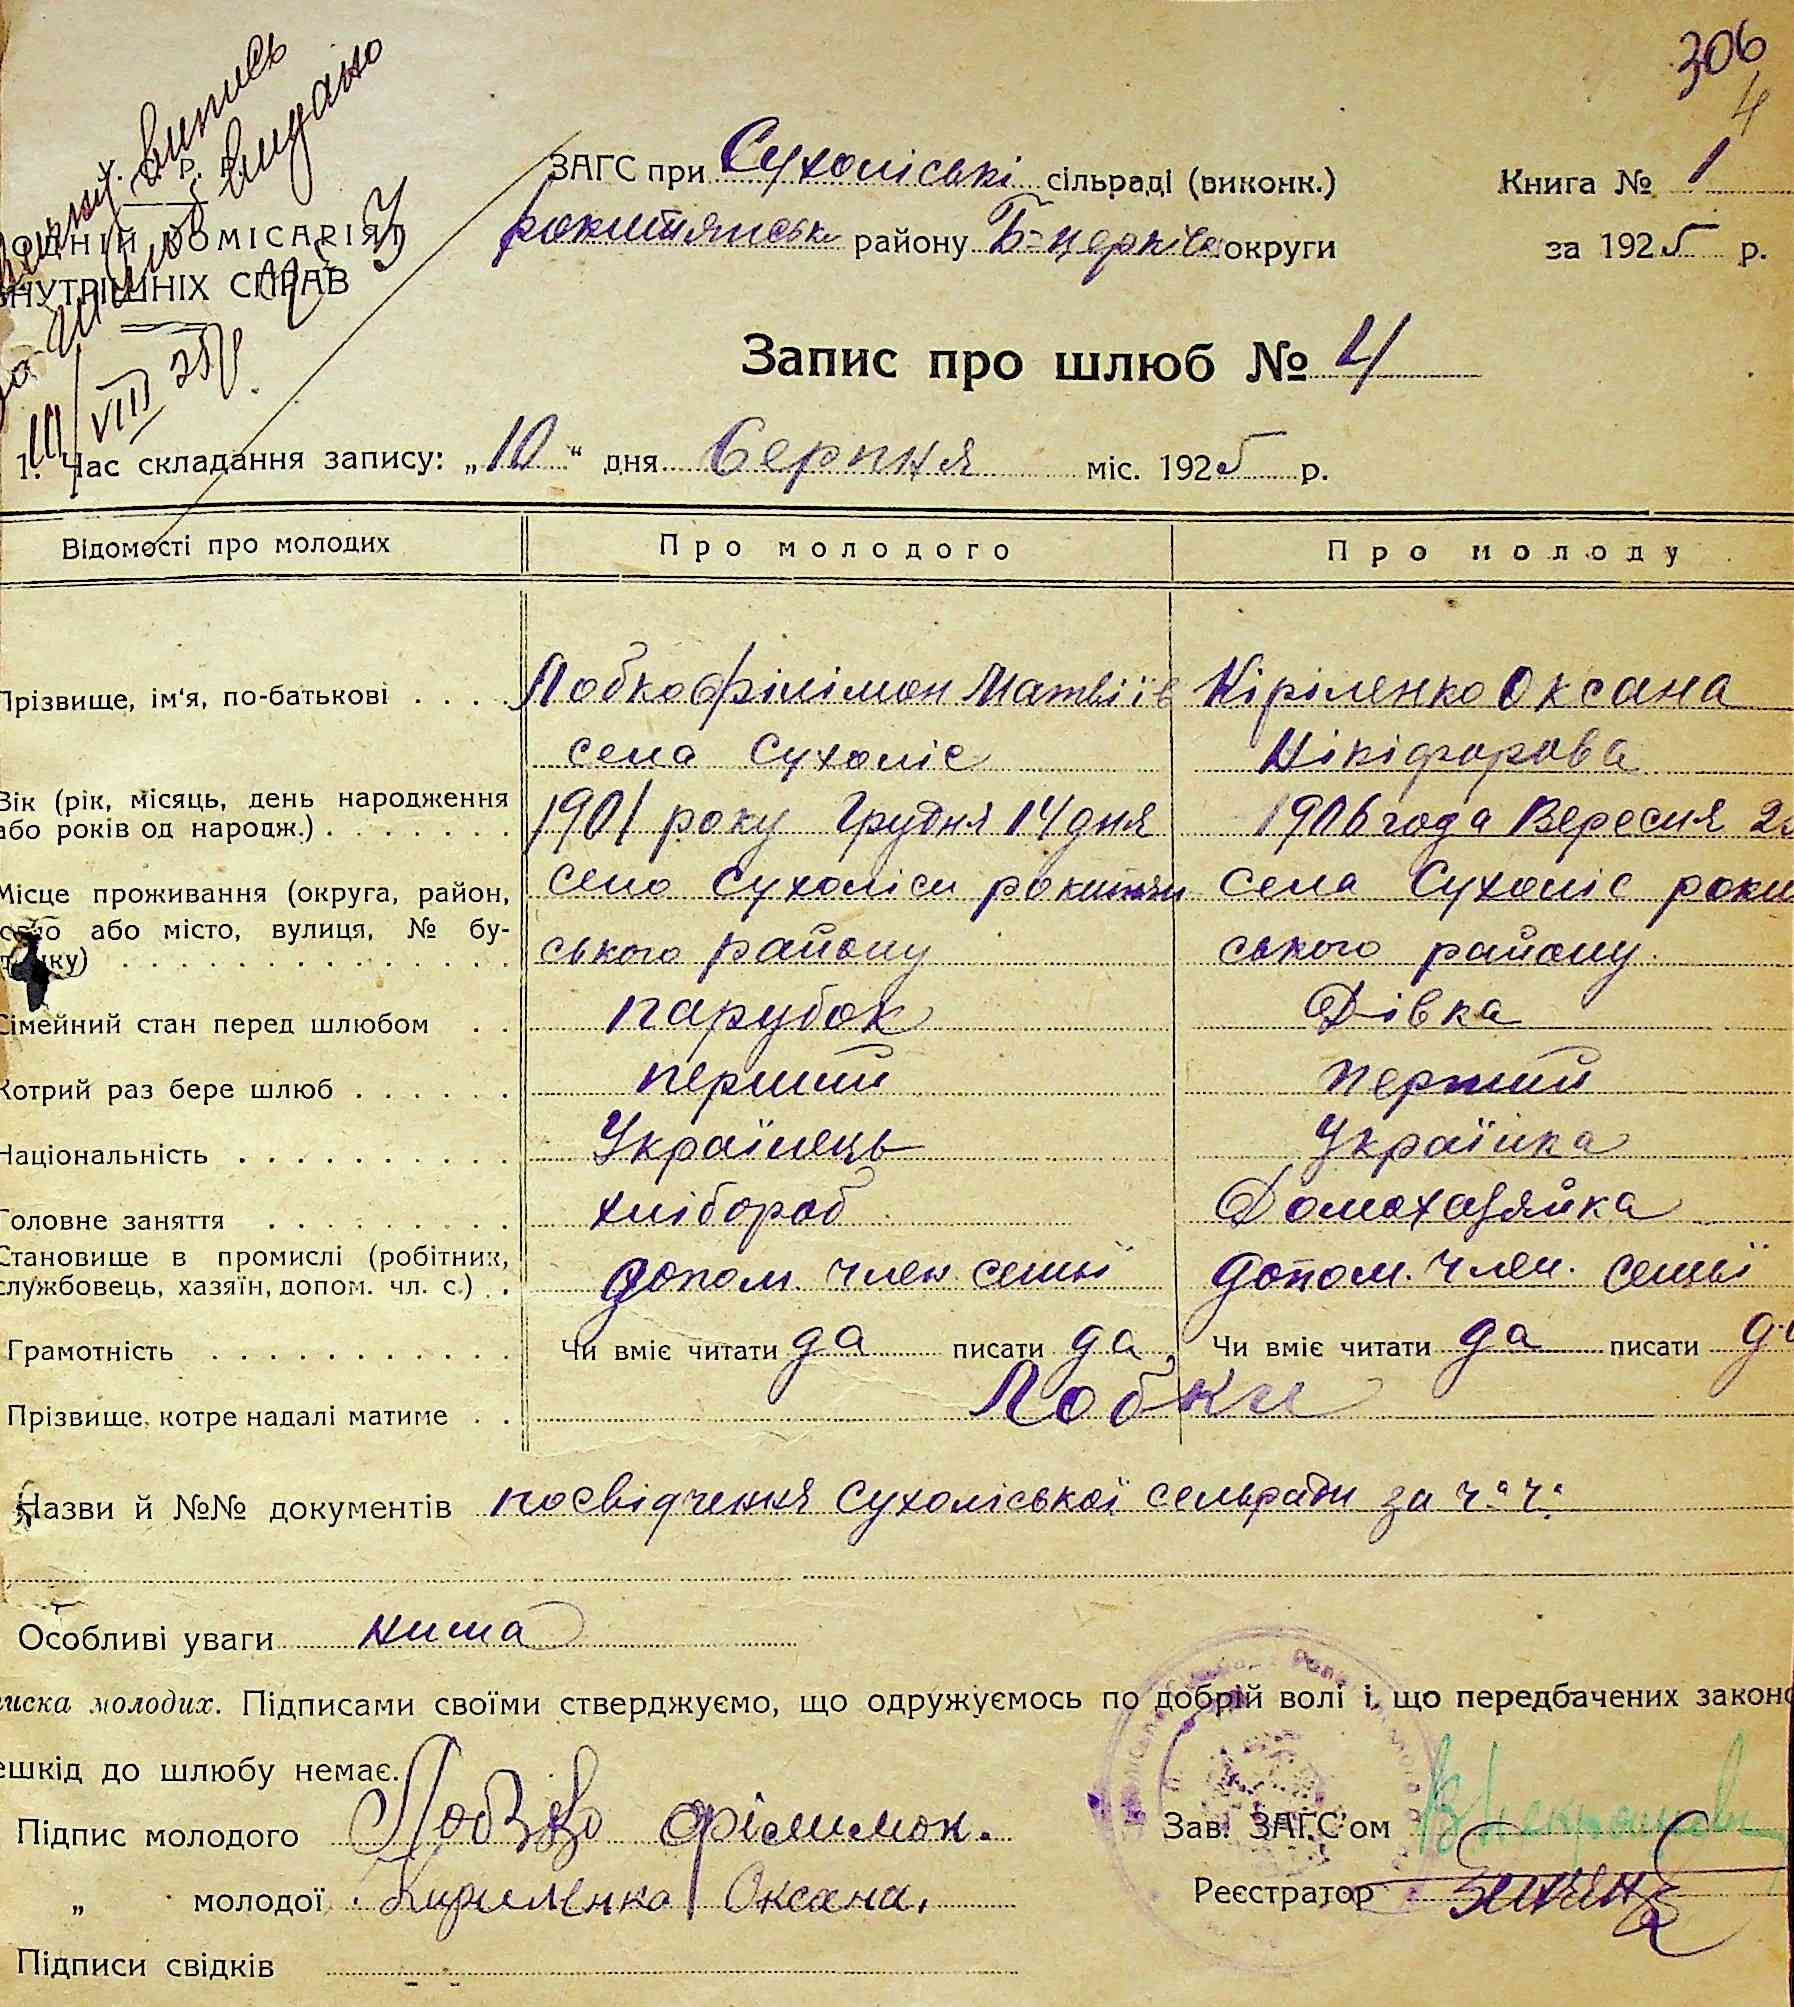 306
4
Випись
видано
У. С. Р. Р.
ОДНІЙ КОМІСАРІЯТ
ВНУТРІШНІХ СПРАВ
10/VIII 25 р.
ЗАГС при Сухоліські сільраді (виконк.) Книга № 1
рокитянськ району Б-церків округи за 1925 р.
Запис про шлюб № 4
1. Час складання запису: „10“ дня Серпня міс. 1925 р.
Відомості про молодих Про молодого Про молоду
Прізвище, ім'я, по-батькові . . . . Лобко Філімон Матвіїв Кіріленко Оксана
села Сухоліс Нікіфорова
Вік (рік, місяць, день народження
або років од народж.) . . . . . . . 1901 року Грудня 14 дня 1906 года Вересня
Місце проживання (округа, район, село Сухоліси рокитян села Сухоліс роки
село або місто, вулиця, № бу-
динку) . . . . . . . . . . . . . . . ського району ського району.
Сімейний стан перед шлюбом . . парубок Дівка
Котрий раз бере шлюб . . . . . . перший перший
Національність . . . . . . . . . . Українець Українка
Головне заняття . . . . . . . . . хлібороб Домохазяйка
Становище в промислі (робітник,
службовець, хазяїн, допом. чл. с.) . . допом. член семьї допом. член. семьї
Грамотність . . . . . . . . . . . Чи вміє читати да писати да, Чи вміє читати да писати да
Прізвище, котре надалі матиме . . Лобки
Назви й №№ документів посвідчення Сухоліської сельради за ч. ч.
Особливі уваги нима
писка молодих. Підписами своїми стверджуємо, що одружуємось по добрій волі і, що передбачених законо
ешкід до шлюбу немає.
Підпис молодого Лобко Філимон. Зав. ЗАГС'ом
„ молодої Кириленко Оксана. Реєстратор
Підписи свідків